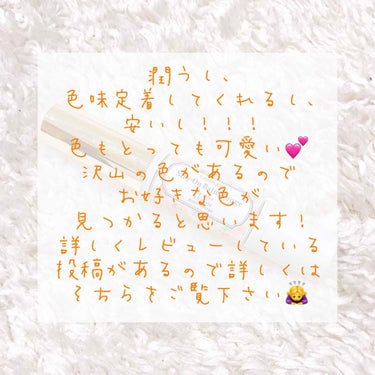 潤うし、
色味定着してくれるし、
安いし！！！
色もとっても可愛い💕
沢山の色があるので
お好きな色が
見つかると思います！
詳しくレビューしている
投稿があるので詳しくは
そちらをご覧下さい🙇‍♀️